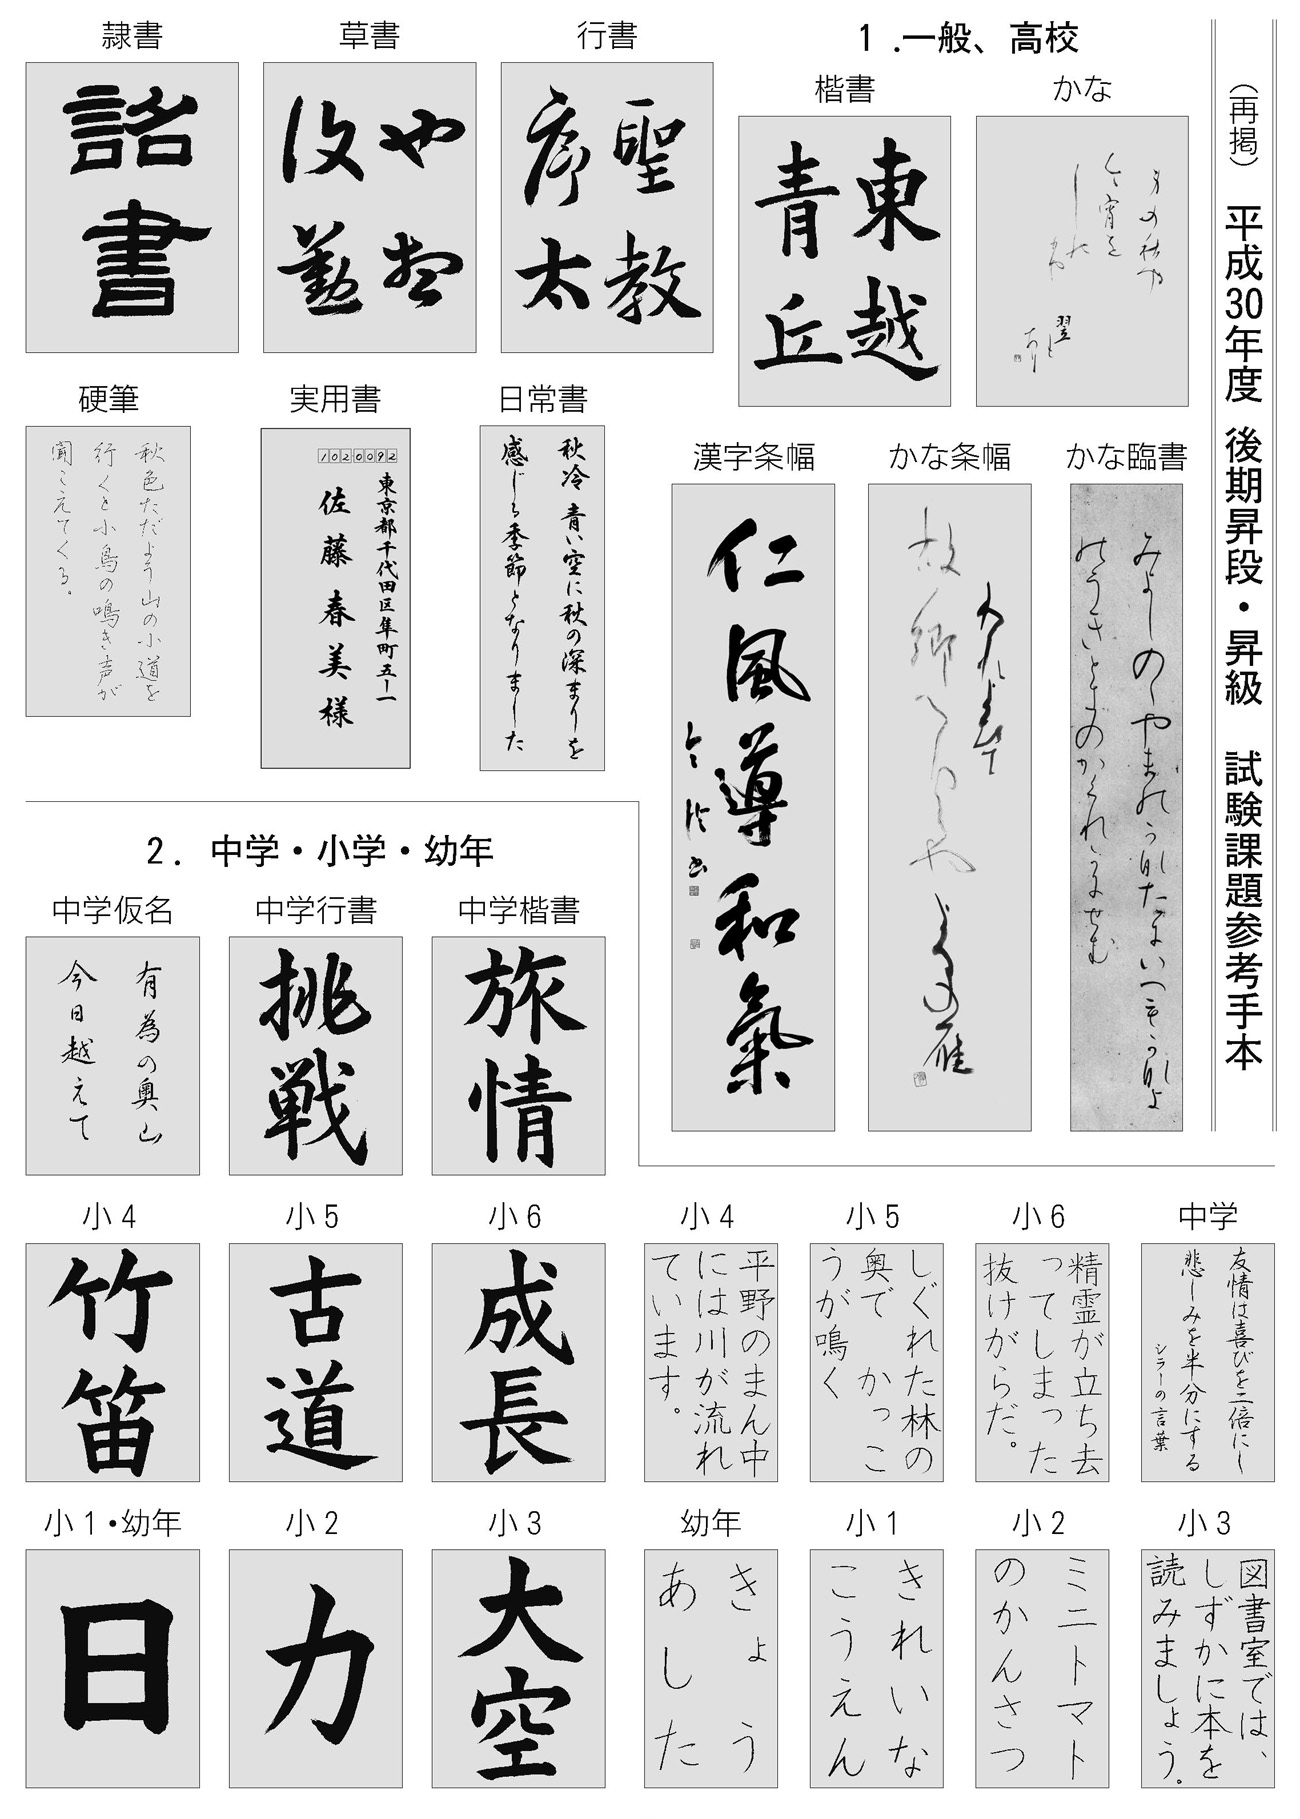 （再掲）　平成30年度　後期昇段・昇級　試験課題参考手本
1.一般、高校
かな
楷書
東越
青丘
行書
聖教
序太
草書
隷書
詔書
かな臨書
みよしのゝやま
かな条幅
故郷
雁
漢字条幅
仁風導和氣
日常書
秋冷 青い空に秋の深まりを
感じる季節となりました
実用書
1020092
東京都千代田区隼町五ー一
佐藤春美様
硬筆
秋色ただよう山の小道を
行くと小鳥の鳴き声が
聞こえてくる。
2. 中学・小学・幼年
中学楷書
旅情
中学行書
挑戦
中学仮名
有為の奥山
今日越えて
小6
成長
小5
古道
小4
竹笛
中学
友情は喜びを二倍にし
悲しみを半分にする
シラーの言葉
小6
精霊が立ち去
ってしまった
抜けがらだ。
小5
しぐれた林の
奥で　かっこ
うが鳴く
小4
平野のまん中
には川が流れ
ています。
小3
大空
小2
力
小1・幼年
日
小3
図書室では、
しずかに本を
読みましょう。
小2
ミニトマト
のかんさつ
小1
きれいな
こうえん
幼年
きょう
あした